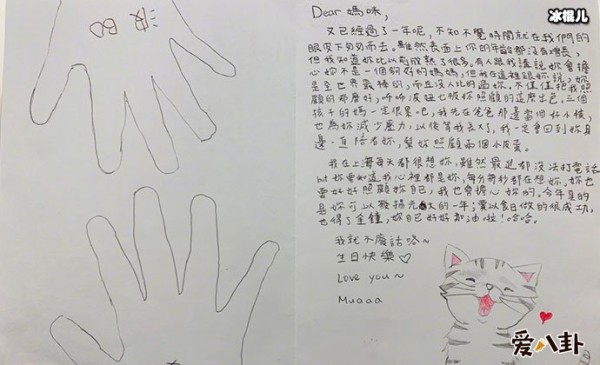 Dear 媽咪,
又已經過了一年呢,不知不覺時間就在我們的
眼皮下匆匆而去。雖然表面上你的年齡都沒有增長,
但我知道妳比以前成熟了很多。有人跟我講說妳會擔
心妳不是一個夠好的媽媽,但我在這裡跟妳說,妳
是全世界最棒的,而且沒人比得過妳。不僅僅把我照
顧的那麼好,咘咘波妞也被妳照顧的這麼出色。三個
孩子的媽一定很累吧,我先在爸爸那邊當個好小孩,
也為妳減少壓力,以後等我長大了,我一定會回到妳身
邊一直陪著妳,幫妳照顧兩個小皮蛋。
我在上海每天都很想妳,雖然最近都沒法打電話
but 妳要知道我心裡都是妳,每分每秒都在想妳。妳也
要好好照顧妳自己,我也會擔心妳的。今年真的
是妳可以發揚光大的一年,愛以食日做的很成功,
也得了金鐘,妳自己好好加油啦!哈哈。
我就不廢話咯~
生日快樂♡
Love you~
Muaaa
BO
冰棍儿
爱八卦